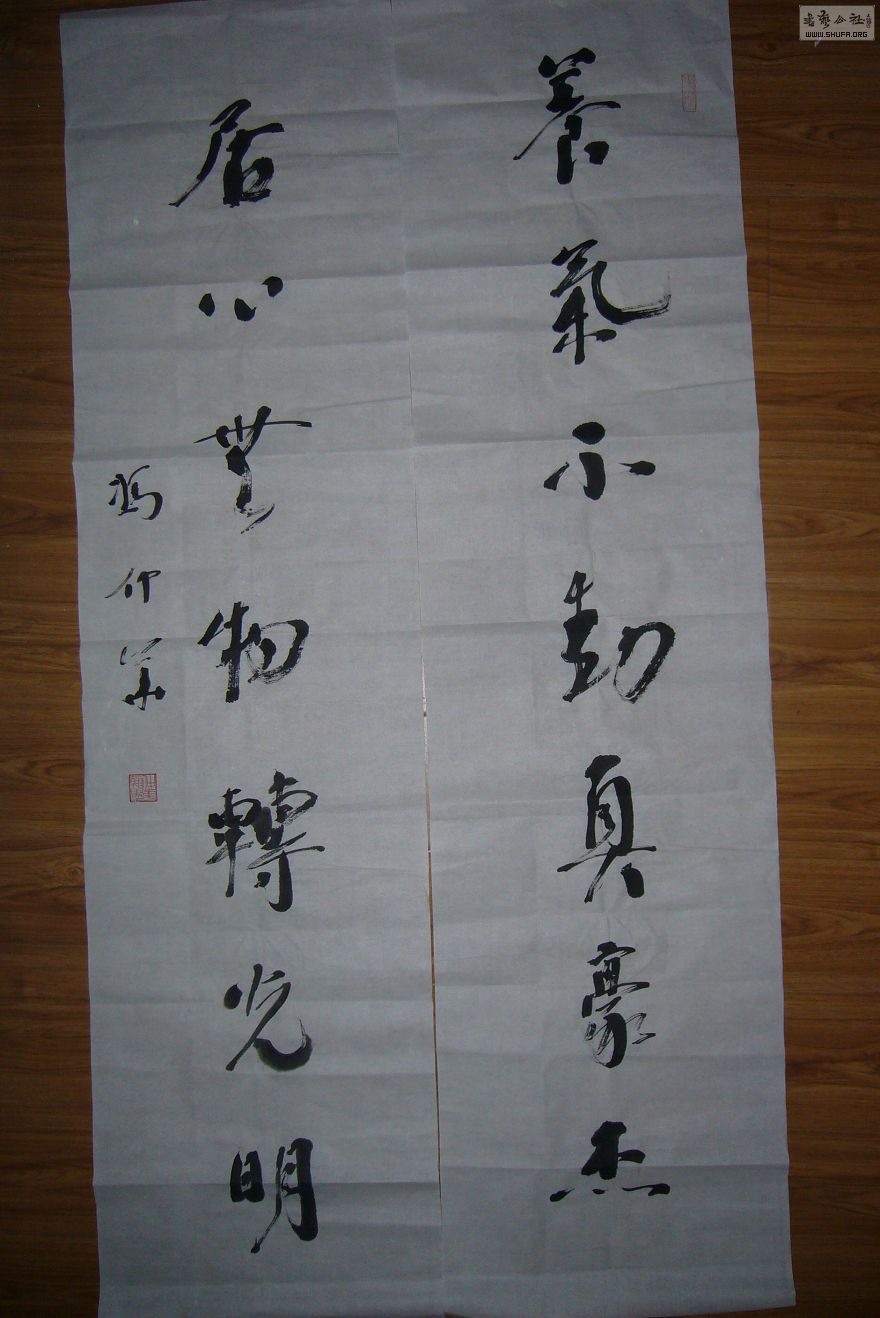 養氣不動真豪杰
居心無物轉光明
馮仲華
書藝公社
WWW.SHUFA.ORG